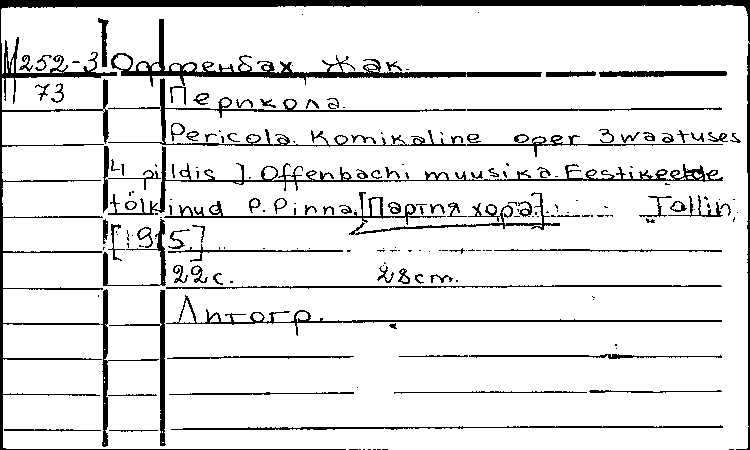 М 252-3 Оффенбах, Жак.
73 Перикола.
Pericola. Komikaline oper 3 waatuses
4 pildis ]. Offenbachi muusika. Eestikeelde
tölkinud P. Pinna. [Партия хора]. Tallin,
[1915]
22 с. 28 cm.
Литогр.